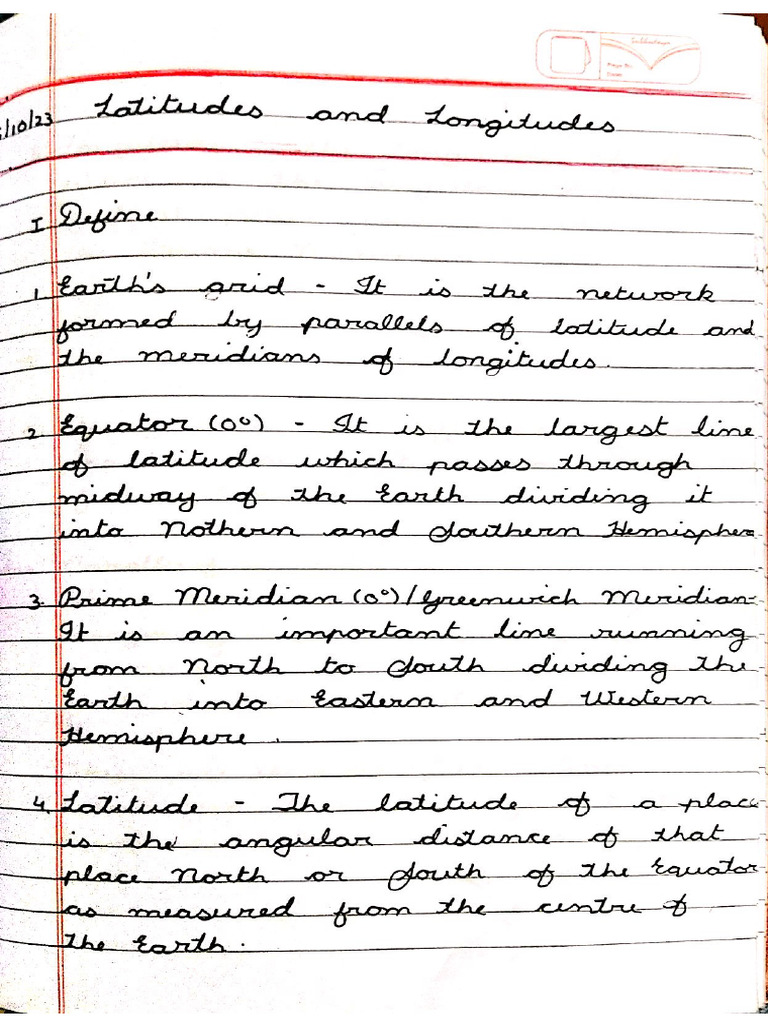 /10/23 Latitudes and Longitudes
I Define
1. Earth's grid - It is the network
formed by parallels of latitude and
the meridians of longitudes.
2. Equator (0°) - It is the largest line
of latitude which passes through
midway of the Earth dividing it
into Nothern and Southern Hemisphere
3. Prime Meridian (0°) / Greenwich Meridian-
It is an important line running
from North to South dividing the
Earth into Eastern and Western
Hemisphere.
4. Latitude - The latitude of a place
is the angular distance of that
place North or South of the Equator
as measured from the centre of
the Earth.